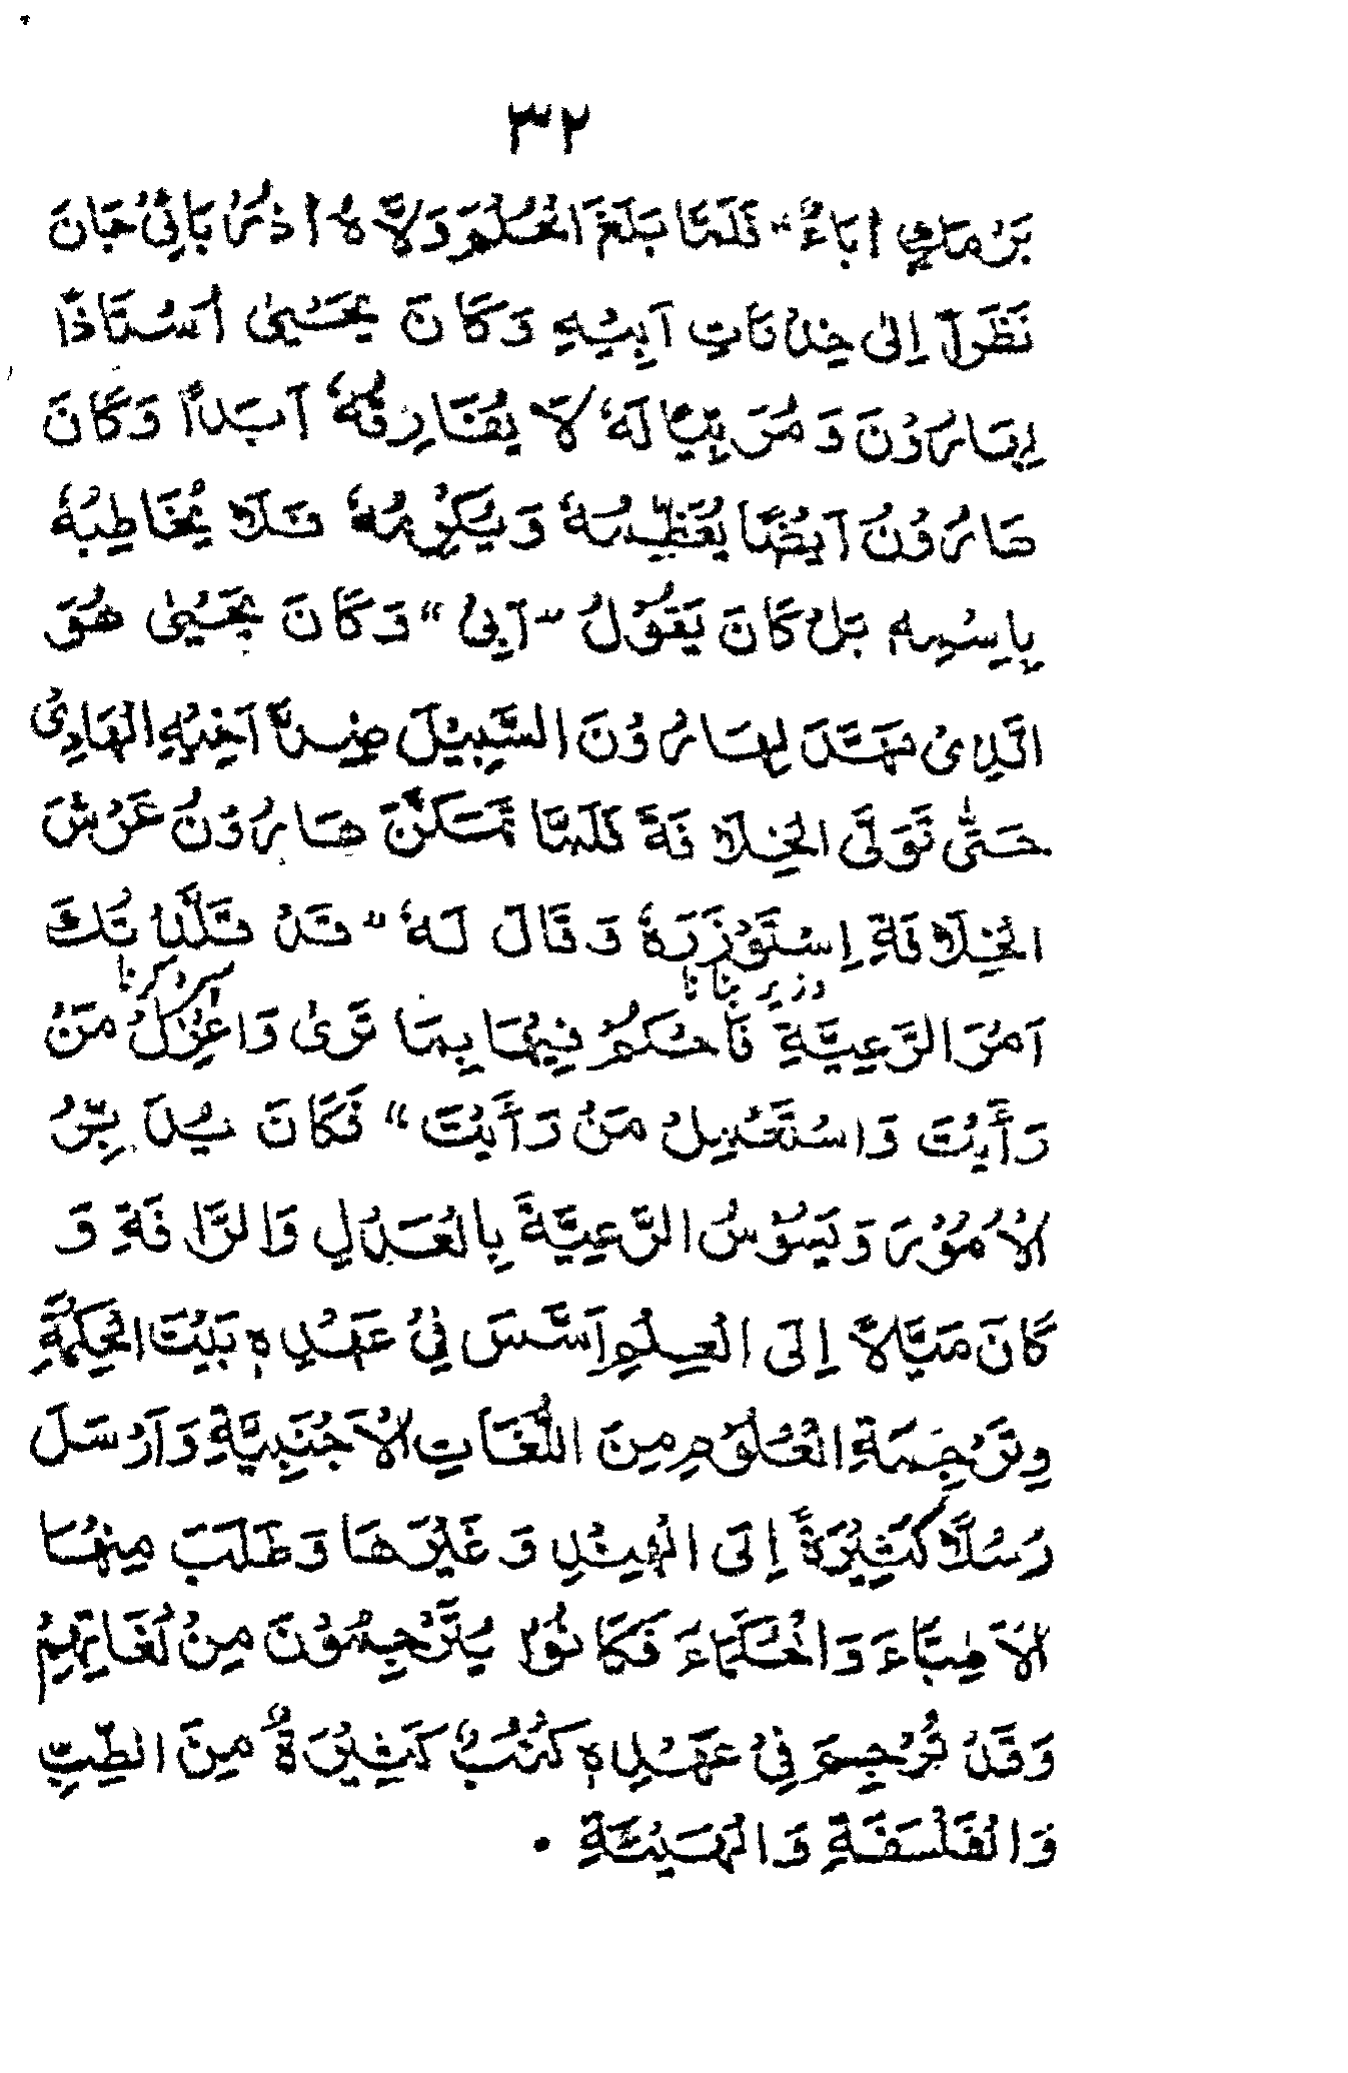 ٣٢
بَرْمَكٍ اٰبَاءٌ" فَلَمَّا بَلَغَ الْحُلُمَ وَلَّاهُ اٰذَرْبَائِیْجَانَ
نَظَرًا اِلٰى خِدْمَاتِ اَبِيْهِ وَكَانَ يَحْيٰى اُسْتَاذًا
لِهَارُوْنَ وَمُرَبِّيًا لَهٗ لَا يُفَارِقُهٗ اَبَدًا وَكَانَ
هَارُوْنُ اَيْضًا يُعَظِّمُهٗ وَيُكْرِمُهٗ فَلَا يُخَاطِبُهٗ
بِاِسْمِهٖ بَلْ كَانَ يَقُوْلُ "اَبِيْ" وَكَانَ يَحْيٰى هُوَ
الَّذِىْ مَهَّدَ لِهَارُوْنَ السَّبِيْلَ ضِدَّ اَخِيْهِ الْهَادِىْ
حَتّٰى تَوَلَّى الْخِلَافَةَ فَلَمَّا تَمَكَّنَ هَارُوْنُ عَرْشَ
الْخِلَافَةِ اِسْتَوْزَرَهٗ وَقَالَ لَهٗ "قَدْ قَلَّدْتُكَ
وزیر بنانا سپرد کرنا
اَمْرَ الرَّعِيَّةِ فَاحْكُمْ فِيْهَا بِمَا تَرٰى وَاعْزِلْ مَنْ
رَأَيْتَ وَاسْتَعْمِلْ مَنْ رَأَيْتَ" فَكَانَ يُدَبِّرُ
الْاُمُوْرَ وَيَسُوْسُ الرَّعِيَّةَ بِالْعَدْلِ وَالرَّافَةِ وَ
كَانَ مَيَّالًا اِلَى الْعِلْمِ اَسَّسَ فِيْ عَهْدِهٖ بَيْتَ الْحِكْمَةِ
وِتَرْجِمَةِ الْعُلُوْمِ مِنَ اللُّغَاتِ الْاَجْنَبِيَّةِ وَاَرْسَلَ
رُسُلًا كَثِيْرَةً اِلَى الْهِنْدِ وَغَيْرِهَا وَطَلَبَ مِنْهَا
الْاَطِبَّاءَ وَالْحُكَمَاءَ فَكَانُوْا يُتَرْجِمُوْنَ مِنْ لُغَاتِهِمْ
وَقَدْ تُرْجِمَ فِيْ عَهْدِهٖ كُتُبٌ كَثِيْرَةٌ مِنَ الطِّبِّ
وَالْفَلْسَفَةِ وَالْهَيْئَةِ ۰